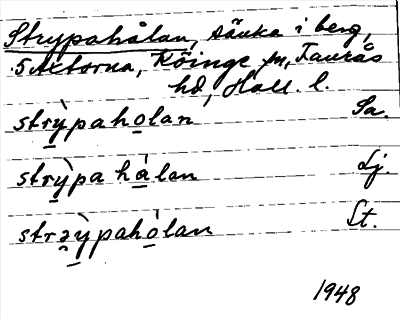 Strypahålan, sänka i berg,
5 Axtorna, Köinge sn, Faurås
hd, Hall. l.
strỳpaholan Sa.
strỳpa hàlan Lj.
strəỳpahòlan St.
1948